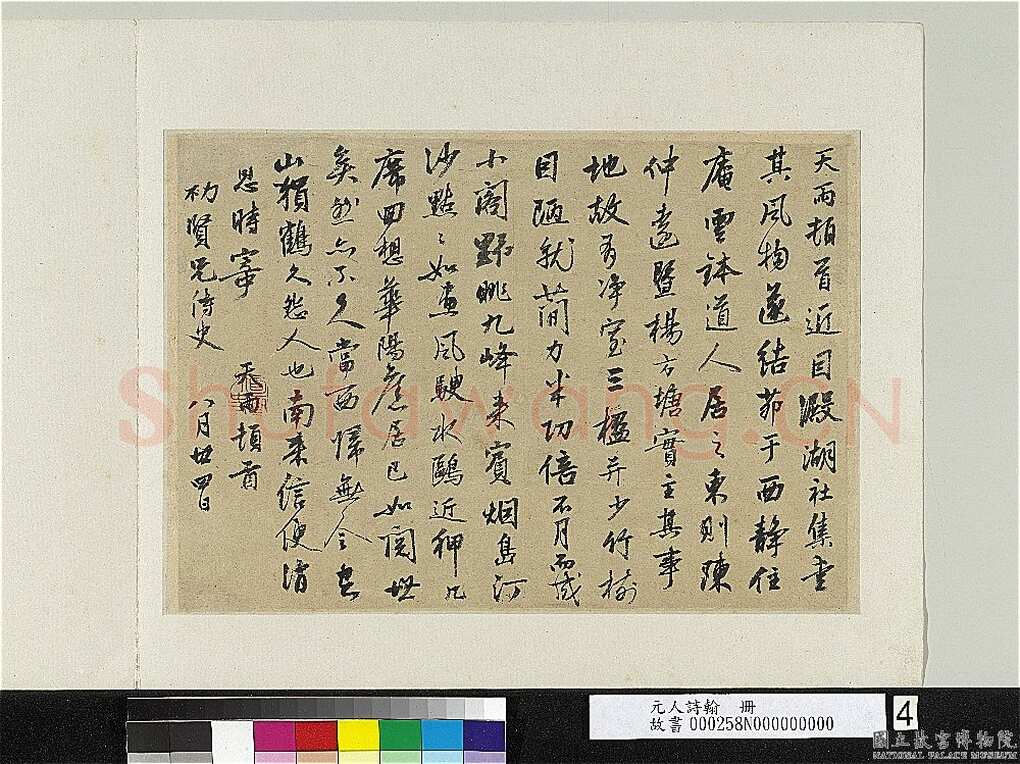 天雨頓首近目澱湖社集重
其風物遂結茆于西靜住
庵雲鉢道人居之東則陳
仲遠暨楊方塘實主其事
地故有淨室三楹并少竹樹
目陋就簡力半功倍不月而成
小閣野眺九峰来賓烟島汀
沙點〻如畫風颿水鷗近狎几
席回想華陽舊居已如閱世
矣然亦不久當西歸無令
山猿鶴久怨人也南来信便請
時寄
初賢兄侍史 天雨頓首
八月廿四日
Shufawang.CN
元人詩翰 冊
故書000258N000000000
4
國立故宮博物院
NATIONAL PALACE MUSEUM